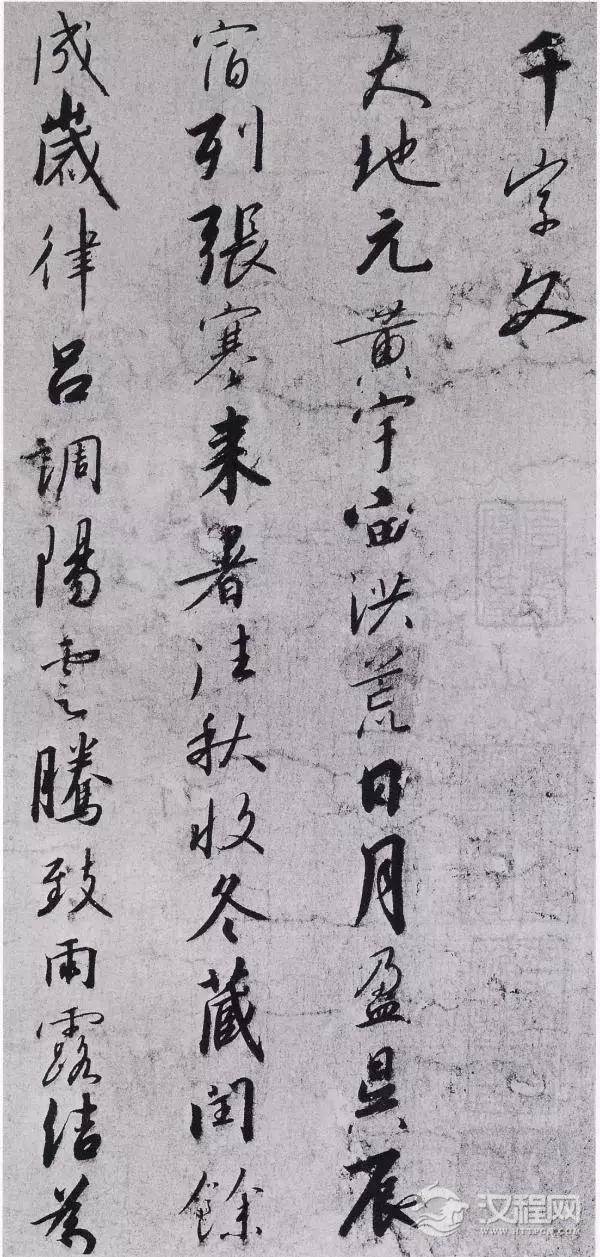 千字文
天地元黄宇宙洪荒日月盈昃辰
宿列張寒来暑往秋收冬蔵閏餘
成歲律吕調陽雲騰致雨露結為
汉程网
WWW.HTTPCN.COM